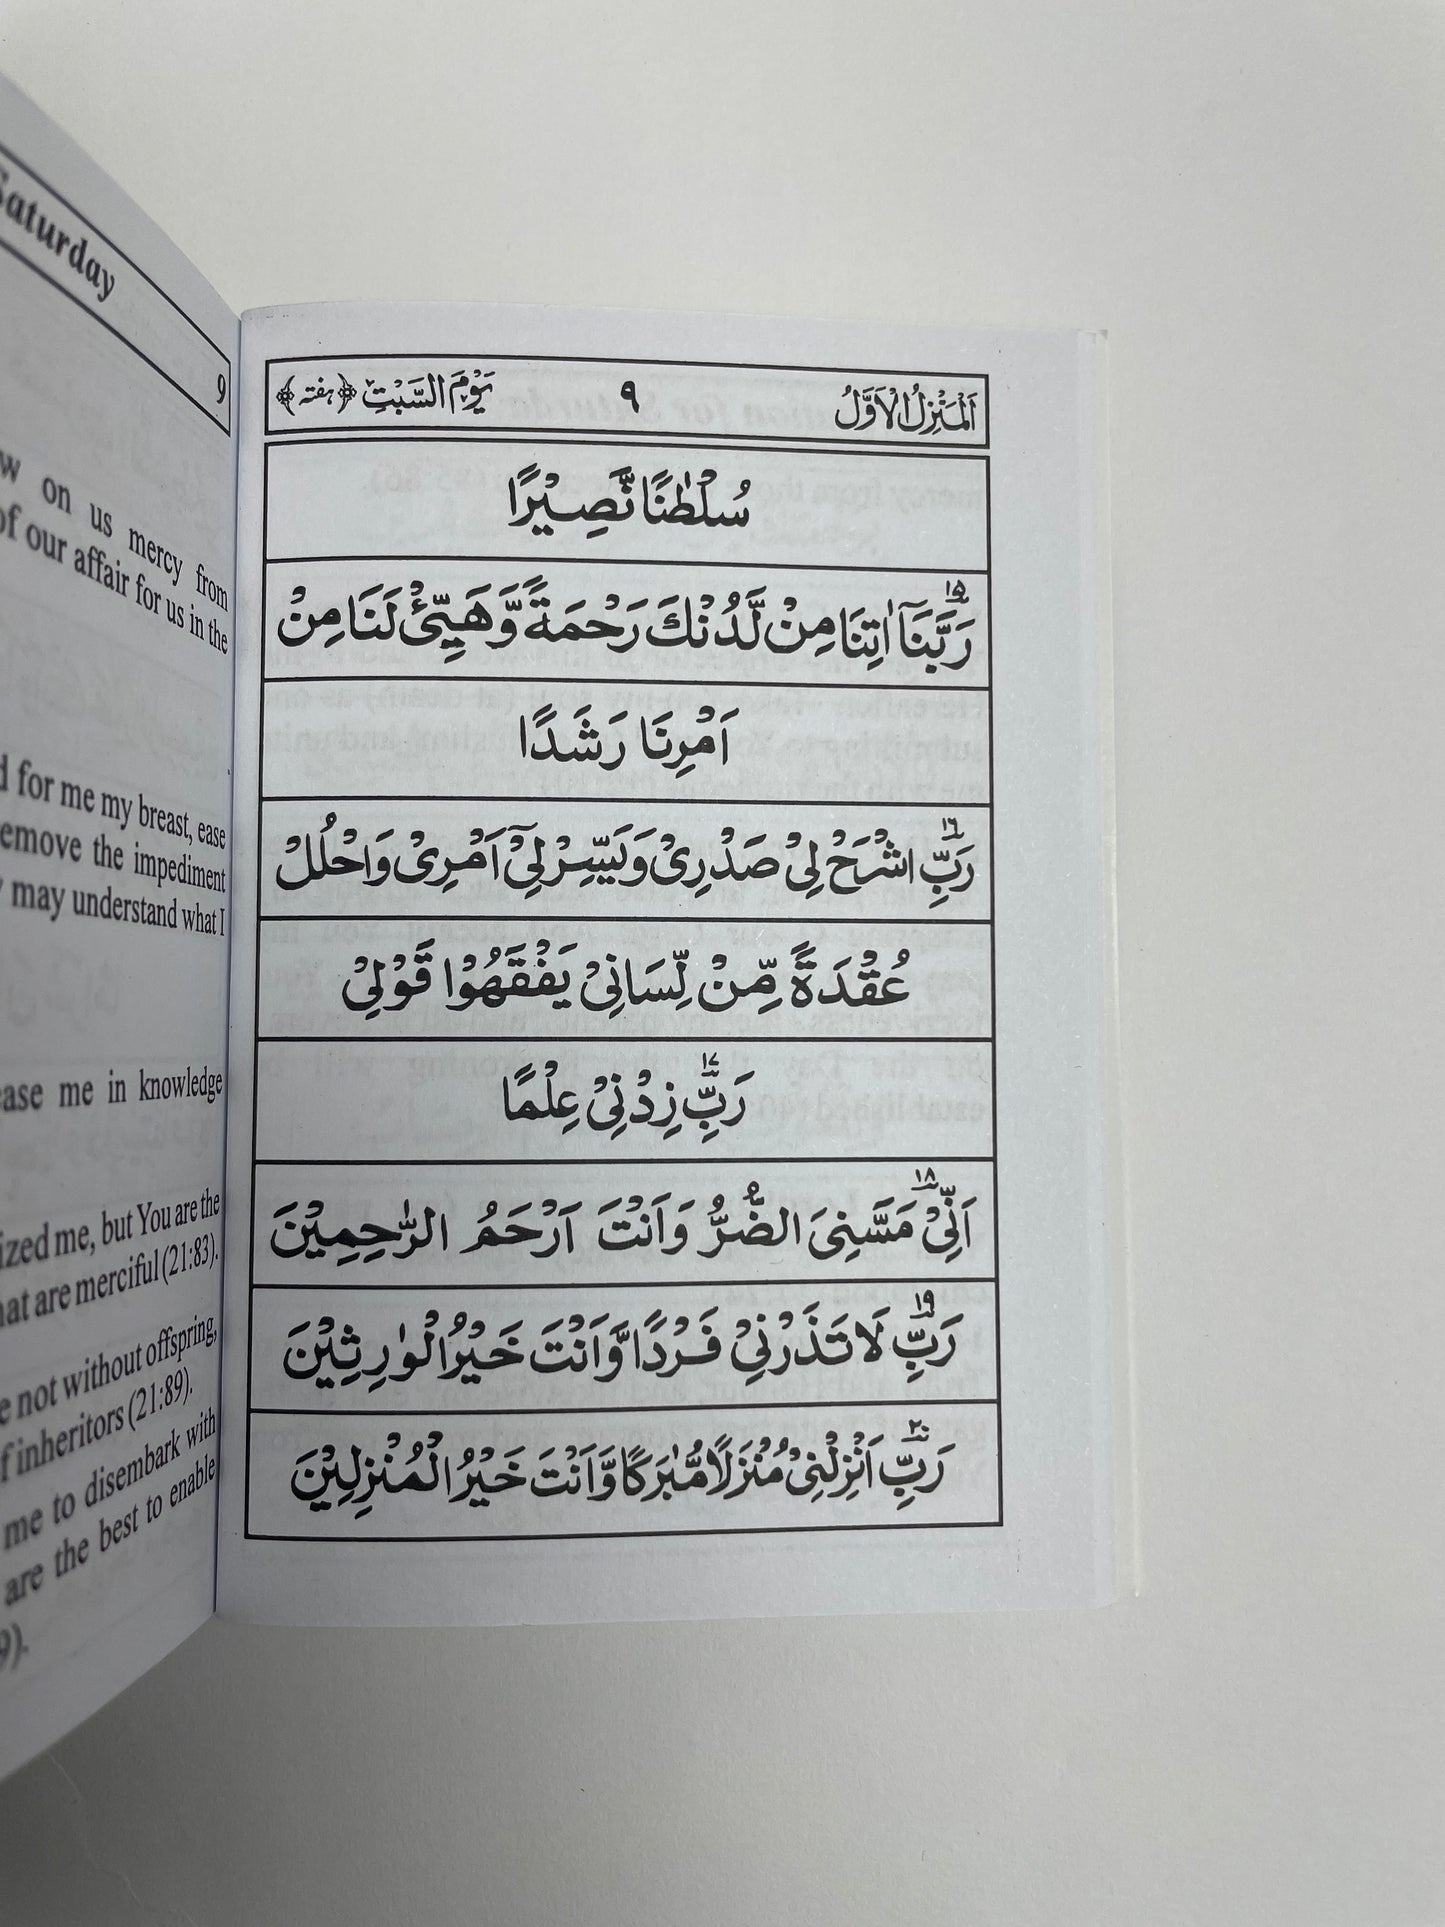 Saturday
9
on us mercy from
of our affair for us in the
for me my breast, ease
the impediment
may understand what I
me in knowledge
me, but You are the
are merciful (21:83).
not without offspring,
inheritors (21:89).
me to disembark with
are the best to enable
اَلْمَنْزِلُ الْاَوَّلُ ٩ يَوْمَ السَّبْتِ ﴿هفته﴾
سُلْطٰنًا نَّصِيْرًا
١٥ رَبَّنَآ اٰتِنَا مِنْ لَّدُنْكَ رَحْمَةً وَّهَيِّئْ لَنَا مِنْ
اَمْرِنَا رَشَدًا
١٦ رَبِّ اشْرَحْ لِيْ صَدْرِيْ وَيَسِّرْ لِيْٓ اَمْرِيْ وَاحْلُلْ
عُقْدَةً مِّنْ لِّسَانِيْ يَفْقَهُوْا قَوْلِيْ
١٧ رَبِّ زِدْنِيْ عِلْمًا
١٨ اَنِّيْ مَسَّنِيَ الضُّرُّ وَاَنْتَ اَرْحَمُ الرّٰحِمِيْنَ
١٩ رَبِّ لَا تَذَرْنِيْ فَرْدًا وَّاَنْتَ خَيْرُ الْوٰرِثِيْنَ
٢٠ رَبِّ اَنْزِلْنِيْ مُنْزَلًا مُّبٰرَكًا وَّاَنْتَ خَيْرُ الْمُنْزِلِيْنَ